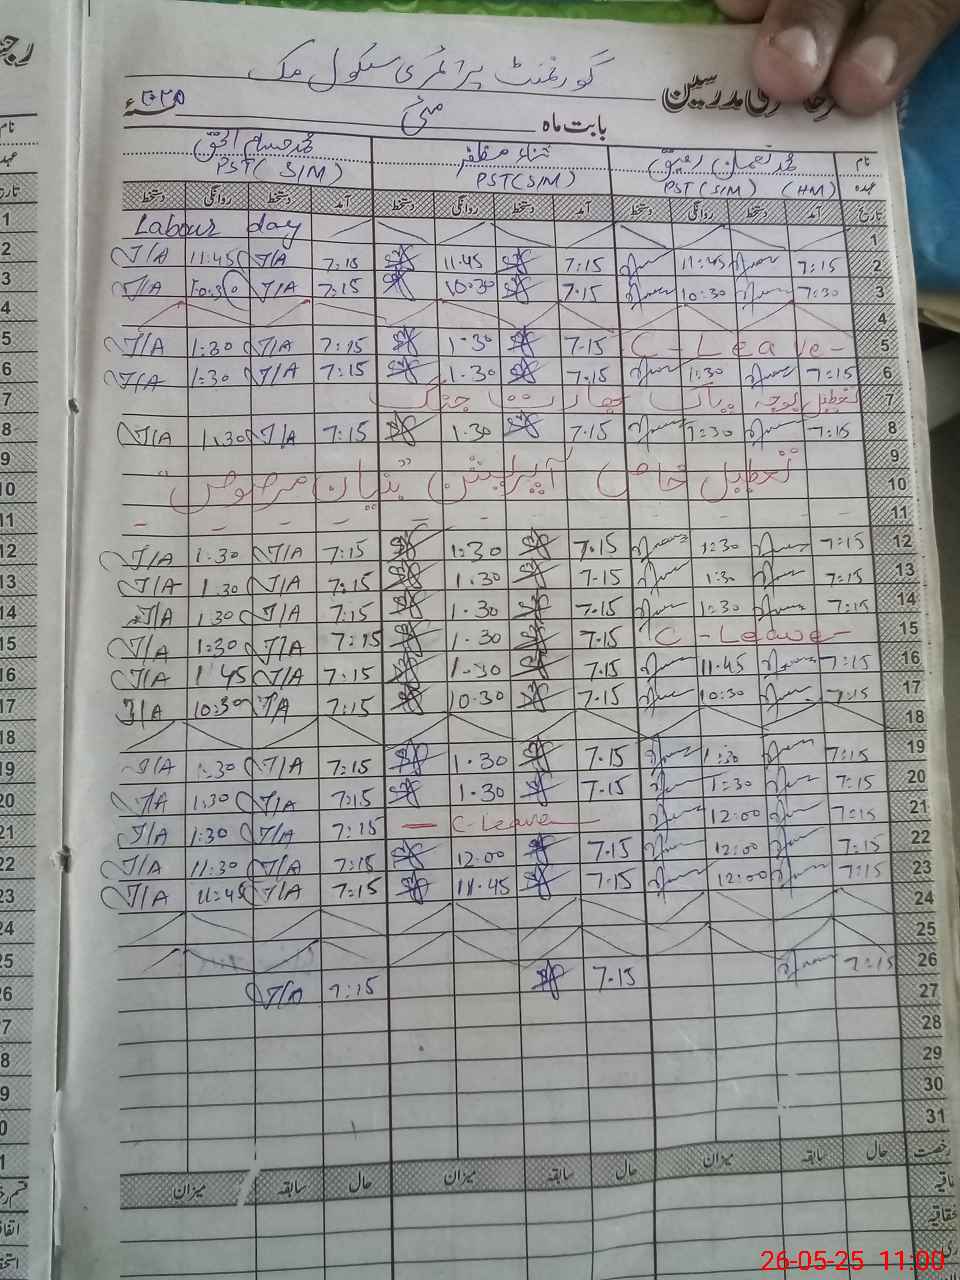 گورنمنٹ پرائمری سکول
مدرسین
بابت ماہ مئی ۲۰۲۵ سنۂ
نام محمد نعمان رفیق ثناء مظفر محمد حسام الحق
عہدہ PST (S/M) (HM) PST (S/M) PST (S/M)
تاریخ آمد دستخط روانگی دستخط آمد دستخط روانگی دستخط آمد دستخط روانگی دستخط
1 Labour day
2 7:15 11:45 7:15 11.45 7:15 T/A 11:45 T/A
3 7:30 10:30 7.15 10.30 7:15 T/A 10:30 T/A
4
5 C - Leave 7.15 1.30 7:15 T/A 1:30 T/A
6 7:15 1:30 7.15 1.30 7:15 T/A 1:30 T/A
7 تعطیل بوجہ پاک بھارت جنگ
8 7:15 1:30 7.15 1.30 7:15 T/A 1.30 T/A
9
10 تعطیل خاص آپریشن "بنیان مرصوص"
11
12 7:15 1:30 7.15 1:30 7:15 T/A 1.30 T/A
13 7:15 1:30 7.15 1.30 7:15 T/A 1.30 T/A
14 7:15 1:30 7.15 1.30 7:15 T/A 1:30 T/A
15 C - Leave 7.15 1.30 7:15 T/A 1:30 T/A
16 7:15 11.45 7.15 1.30 7:15 T/A 1:45 T/A
17 7:15 10:30 7.15 10.30 7:15 T/A 10:30 T/A
18
19 7:15 1:30 7.15 1.30 7:15 T/A 1.30 T/A
20 7:15 1:30 7.15 1.30 7:15 T/A 1:30 T/A
21 7:15 12:00 C-Leave 7:15 T/A 1:30 T/A
22 7:15 12:00 7.15 12:00 7:15 T/A 11:30 T/A
23 7:15 12:00 7.15 11.45 7:15 T/A 11:45 T/A
24
25
26 7:15 7.15 7:15 T/A
27
28
29
30
31
رخصت حال سابقہ میزان حال سابقہ میزان حال سابقہ میزان
26-05-25 11:00